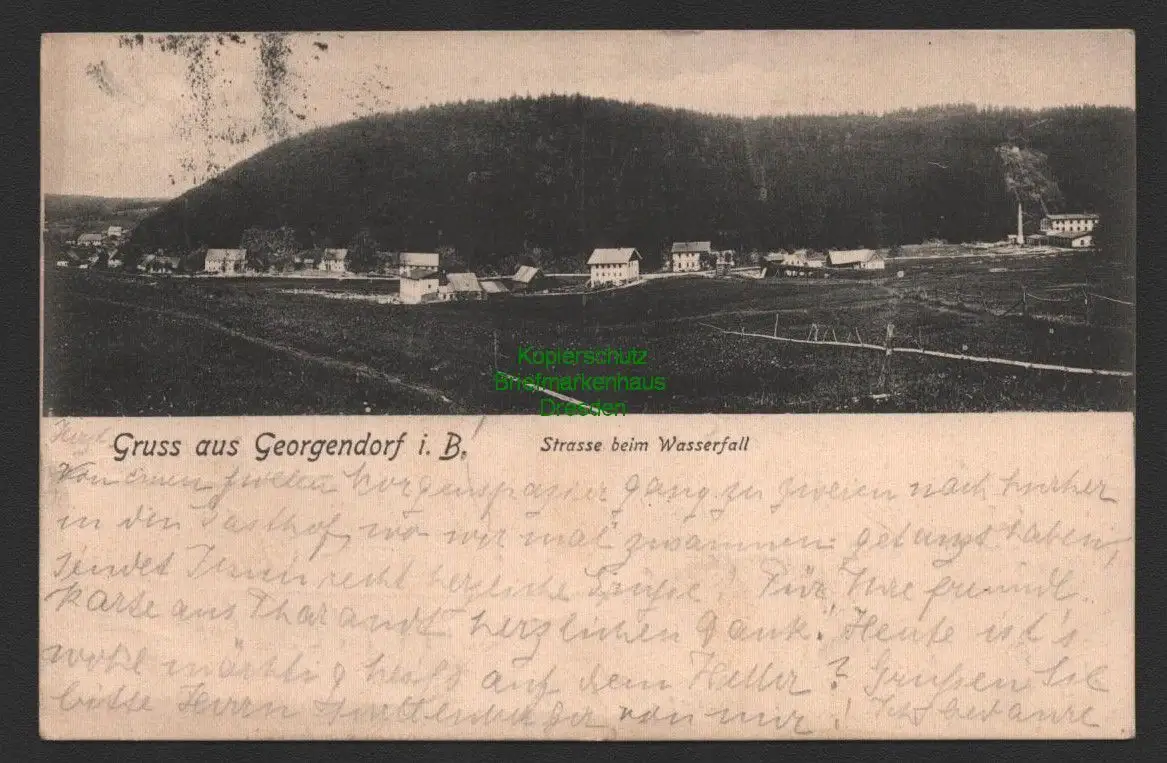 Kopierschutz
Briefmarkenhaus
Dresden
Gruss aus Georgendorf i. B. Strasse beim Wasserfall
Von einem tollen Morgenspazier gang zu zweien nach hierher
in den Gasthof, wo wir mal zusammen getanzt haben,
sendet Ihnen recht herzliche Grüße! Für Ihre freundl.
Karte aus Tharandt herzlichen Dank! Heute ist's
wohl mächtig heiß auf dem Heller? Grüßen Sie
bitte Herrn von mir! Ich bedaure